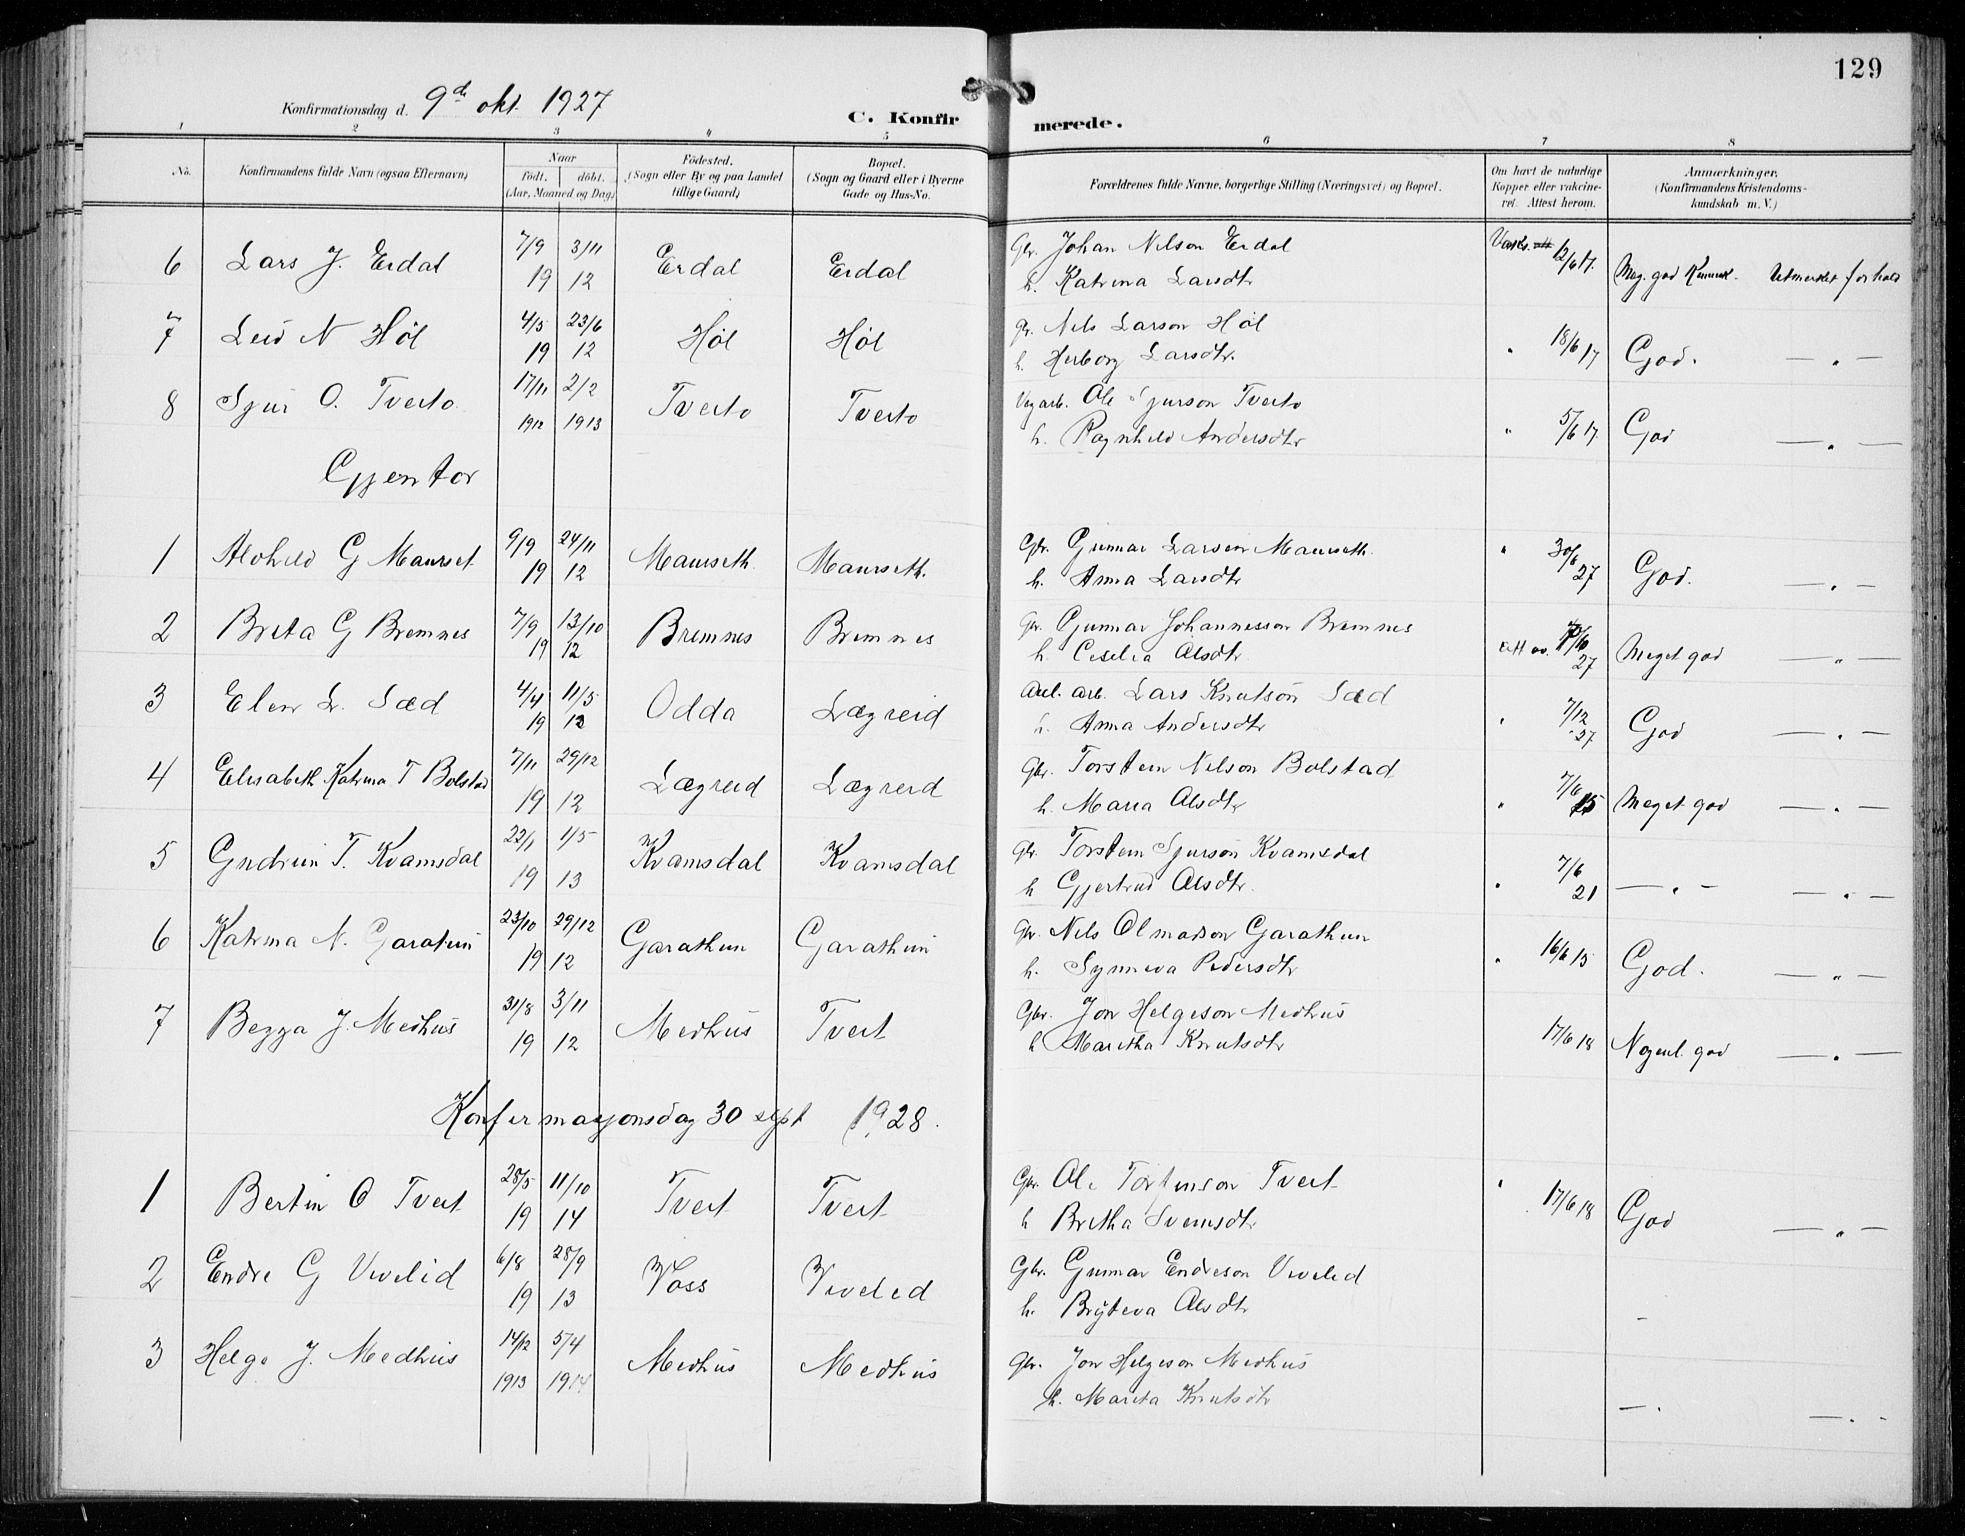 129
Konfirmationsdag d. 9de okt. 1927
C. Konfirmerede.
1 2 3 4 5 6 7 8
No.
Konfirmandens fulde Navn (ogsaa Efternavn)
Naar
født. døbt.
(Aar, Maaned og Dag)
Fødested.
(Sogn eller By og paa Landet
tillige Gaard)
Bopæl.
(Sogn og Gaard eller i Byerne
Gade og Hus-No.
Forældrenes fulde Navne, borgerlige Stilling (Næringsvei) og Bopæl.
Om havt de naturlige
Kopper eller vakcine-
ret. Attest herom.
Anmærkninger.
(Konfirmandens Kristendoms-
kundskab m. V.)
6 Lars J. Erdal 7/9 19 3/11 12 Erdal Erdal Gbr. Johan Nilson Erdal
h. Katrina Larsdtr 12/6 17. Meg. god Utmerket forhold
7 Leid N Høl 4/5 19 23/6 12 Høl Høl Gbr. Nils Larson Høl
h. Herborg Larsdtr. " 18/6 17 God. — " —
8 Sjur O. Tveito 17/11 1912 2/2 1913 Tveito Tveito Vegarb. Ole Sjurson Tveito
h. Ragnhild Andersdtr " 5/6 17. God — " —
Gjentor
1 Alvhild G Maurset 9/9 19 24/11 12 Maurseth Maurseth. Gbr. Gunnar Larson Maurseth.
h. Anna Larsdtr " 30/6 27 God. — " —
2 Brita G Bremnes 7/9 19 13/10 12 Bremnes Bremnes Gbr. Gunnar Johannesson Bremnes
h. Ceselia Olsdtr. att av. 27 Meget god — " —
3 Elen L. Sæd 4/4 19 11/5 12 Odda Lægreid arb. Lars Knutson Sæd
h. Anna Andersdtr " 7/12 27 God — " —
4 Elisabeth Katrina T Bolstad 7/11 19 29/12 12 Lægreid Lægreid Gbr. Torstein Nilson Bolstad
h. Maria Olsdtr " 7/6 15 Meget god — " —
5 Gudrun T. Kvamsdal 22/1 19 1/5 13 Kvamsdal Kvamsdal Gbr. Torstein Sjurson Kvamsdal
h Gjertrud Olsdtr. " 7/6 21 — " — — " —
6 Katrina N. Garatun 23/10 19 29/12 12 Garathun Garathun Gbr. Nils Olmodson Garathun
h. Synneva Pedersdtr " 16/6 15 God. — " —
7 Begga J. Medhus 31/8 19 3/11 12 Medhus Tveit Gbr. Jon Helgeson Medhus
h Maritha Knutsdtr 17/6 18 Nogenl. god — " —
Konfirmasjonsdag 30 sept 1928.
1 Bertin O Tveit 28/5 19 11/10 14 Tveit Tveit Gbr. Ole Torsteinson Tveit
h Britha Sveinsdtr " 17/6 18 God — " —
2 Endre G Vivelid 6/8 19 28/9 13 Voss Vivelid Gbr. Gunnar Endreson Vivelid
h. Bryteva Olsdtr -
3 Helge J. Medhus 14/12 1913 5/4 1914 Medhus Medhus Gbr. Jon Helgeson Medhus
h. Marita Knutsdtr — " — " -